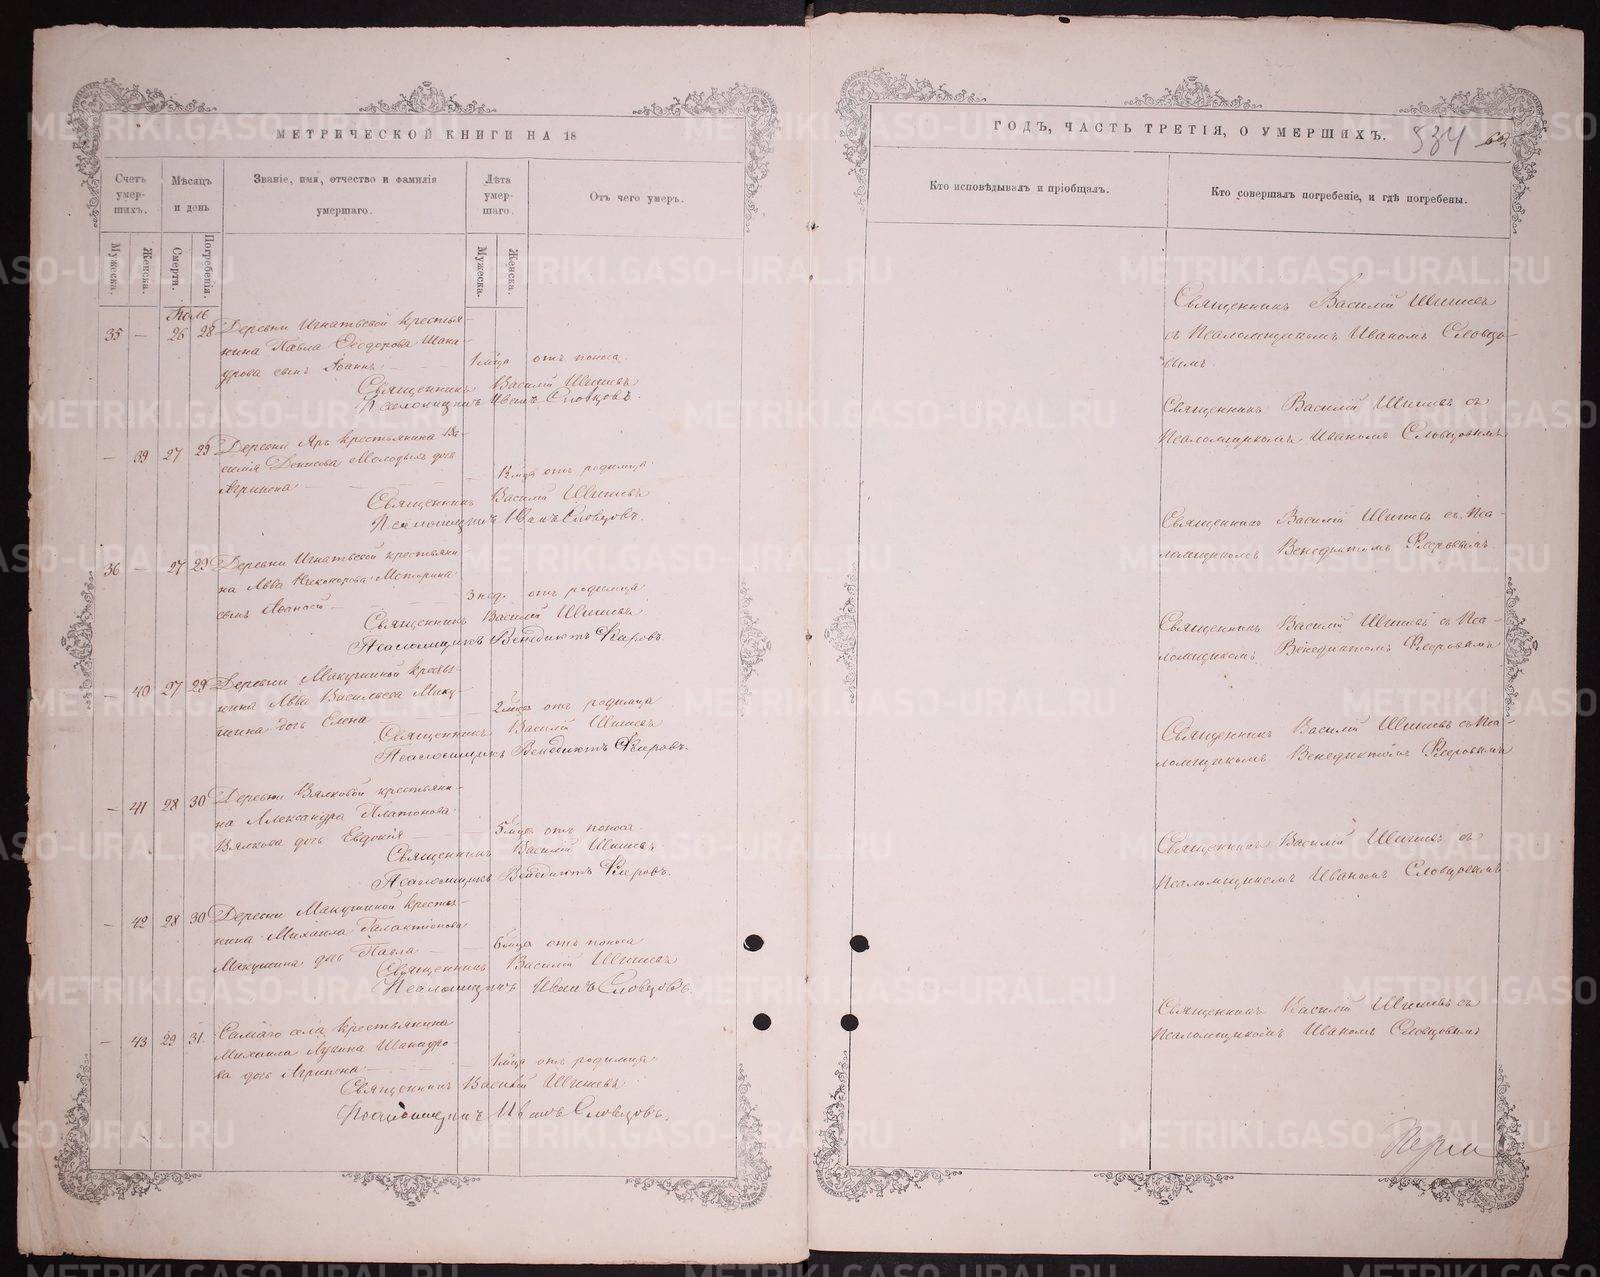 МЕТРИЧЕСКОЙ КНИГИ НА 18
Счетъ умер-шихъ.
Мѣсяцъ и день
Званіе, имя, отчество и фамилія умершаго.
Лѣта умер-шаго.
Отъ чего умеръ.
Мужеска.
Женска.
Смерти.
Погребенія.
Мужеска.
Женска.
Іюль
35 — 26 28 Деревни Игнатьевой крестья-
нина Павла Ѳеодорова
сынъ Іоаннъ 1 мѣсца отъ поноса
Священникъ Василій Шишевъ
Псаломщикъ Иванъ Словцовъ.
— 39 27 29 Деревни Яръ крестьянина Ва-
силія Денисова Молодыхъ дочь
Агрипена отъ родимца
Священникъ Василій Шишевъ
Псаломщикъ Иванъ Словцовъ.
36 27 29 Деревни Игнатьевой крестьяни
на Льва Никонорова
сынъ Аѳанасій 3 нед. отъ родимца
Священникъ Василій Шишевъ
Псаломщикъ Венедиктъ Флеровъ.
— 40 27 29 Деревни Макушиной кресть-
янина Льва Васильева Маку-
шина дочь Елена 2 мѣсца отъ родимца
Священникъ Василій Шишевъ
Псаломщикъ Венедиктъ Флеровъ.
— 41 28 30 Деревни Вялковой крестьяни-
на Александра Платонова
Вялкова дочь Евдокія 5 мѣсца отъ поноса
Священникъ Василій Шишевъ
Псаломщикъ Венедиктъ Флеровъ.
— 42 28 30 Деревни Макушиной крестья-
нина Михаила Галактіонова
Макушина дочь Павла 6 мѣсца отъ поноса
Священникъ Василій Шишевъ
Псаломщикъ Иванъ Словцовъ.
— 43 29 31 Самаго села крестьянина
Михаила Лукина
ва дочь Агрипена 1 мѣсца отъ родимца
Священникъ Василій Шишевъ
Псаломщикъ Иванъ Словцовъ.
ГОДЪ, ЧАСТЬ ТРЕТІЯ, О УМЕРШИХЪ. 534
Кто исповѣдывалъ и пріобщалъ.
Кто совершалъ погребеніе, и гдѣ погребены.
Священникъ Василій Шишевъ
съ Псаломщикомъ Иваномъ Словцо-
вымъ.
Священникъ Василій Шишевъ съ
Псаломщикомъ Иваномъ Словцовымъ
Священникъ Василій Шишевъ съ Пса-
ломщикомъ Венедиктомъ Флеровымъ
Священникъ Василій Шишевъ съ Пса-
ломщикомъ Венедиктомъ Флеровымъ
Священникъ Василій Шишевъ съ Пса-
ломщикомъ Венедиктомъ Флеровымъ
Священникъ Василій Шишевъ съ
Псаломщикомъ Иваномъ Словцовымъ
Священникъ Василій Шишевъ съ
Псаломщикомъ Иваномъ Словцовымъ
METRIKI.GASO-URAL.RU